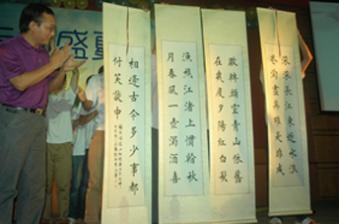 盛夏
滾滾長江東逝水浪
花淘盡英雄是非成
敗轉頭空青山依舊
在幾度夕陽紅白髮
漁樵江渚上慣看秋
月春風一壺濁酒喜
相逢古今多少事都
付笑談中